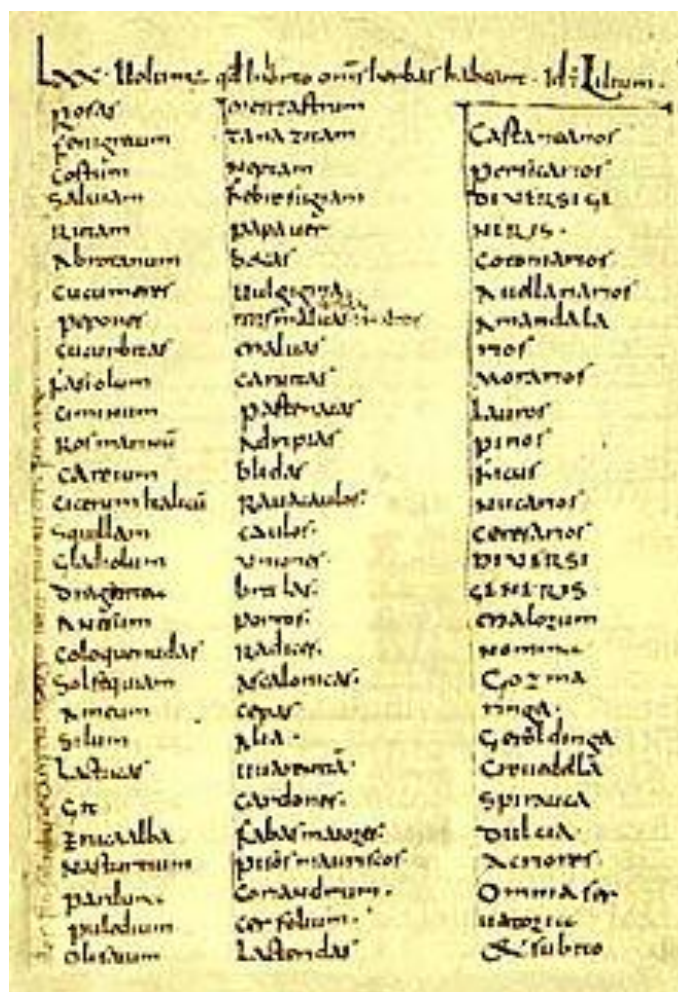 Lxx. Uolumus qd in horto omīs herbas habeant. Id÷ Lilium.
Rosas
Fenigrecum
Costum
Saluiam
Rutam
Abrotanum
Cucumeres
Pepones
Cucurbitas
Fasiolum
Ciminum
Ros marinū
Careium
Cicerum italicū
Squillam
Gladiolum
Anesum
Coloquentidas
Solsequiam
Ameum
Silum
Lactucas
Git
Eruca alba
Nasturtium
Puledium
Olisatum
Mentastrum
Tanazitam
Neptam
Febrefugiam
Papauer
Betas
Uulgigina
Maluas
Caruitas
Pastenacas
Adripias
Blidas
Rauacaulos.
Caulos.
Uniones.
Britlas.
Porros.
Radices.
Ascalonicas.
Cepas
Alia.
Cardones.
Fabas maiores.
Pisos mauriscos
Coriandrum.
Cerfolium.
Lacteridas
Castanearios
Persicarios
DIVERSI GE
NERIS.
Cotoniarios
Auellanarios
Amandala
rios
Morarios
Lauros
Pinos
Ficus
Nucarios
Ceresarios
DIVERSI
GENERIS.
Malorum
Nomina
Gozma
ringa.
Geroldinga
Creuedella
Spirauca
Dulcia
Acriores.
Omnia ser
uatoria
Et subito